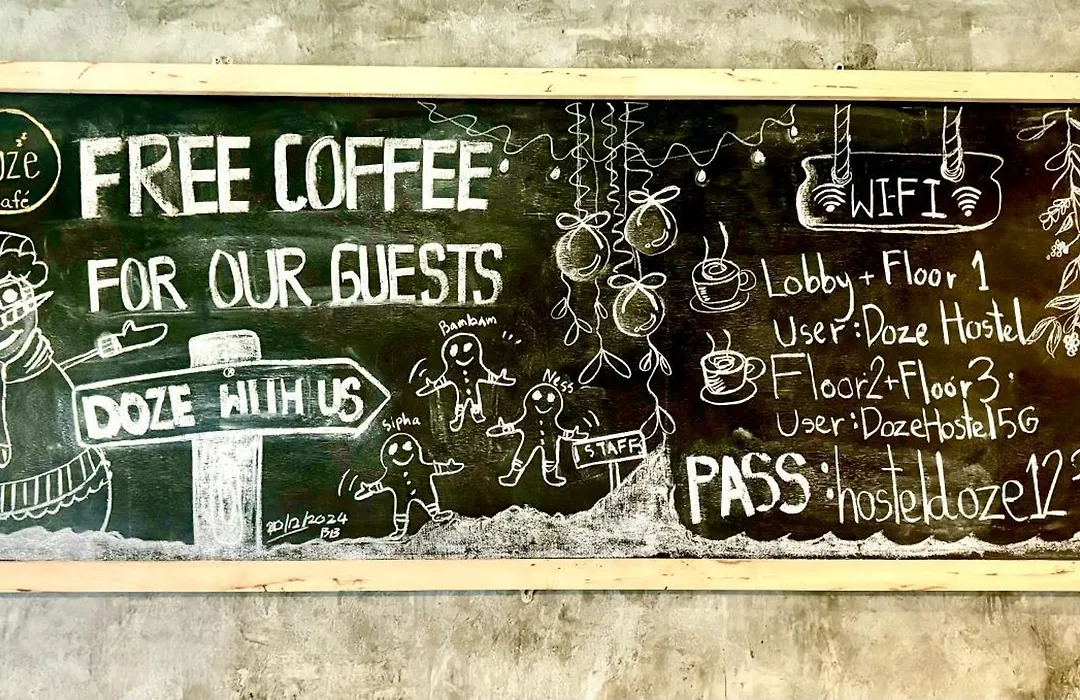 FREE COFFEE
FOR OUR GUESTS
DOZE WITH US
Bambam
Ness
Sipha
STAFF
20/12/2024
WI-FI
Lobby + Floor 1
User : Doze Hostel
Floor2+Floor3
User : DozeHostel5G
PASS : hosteldoze123